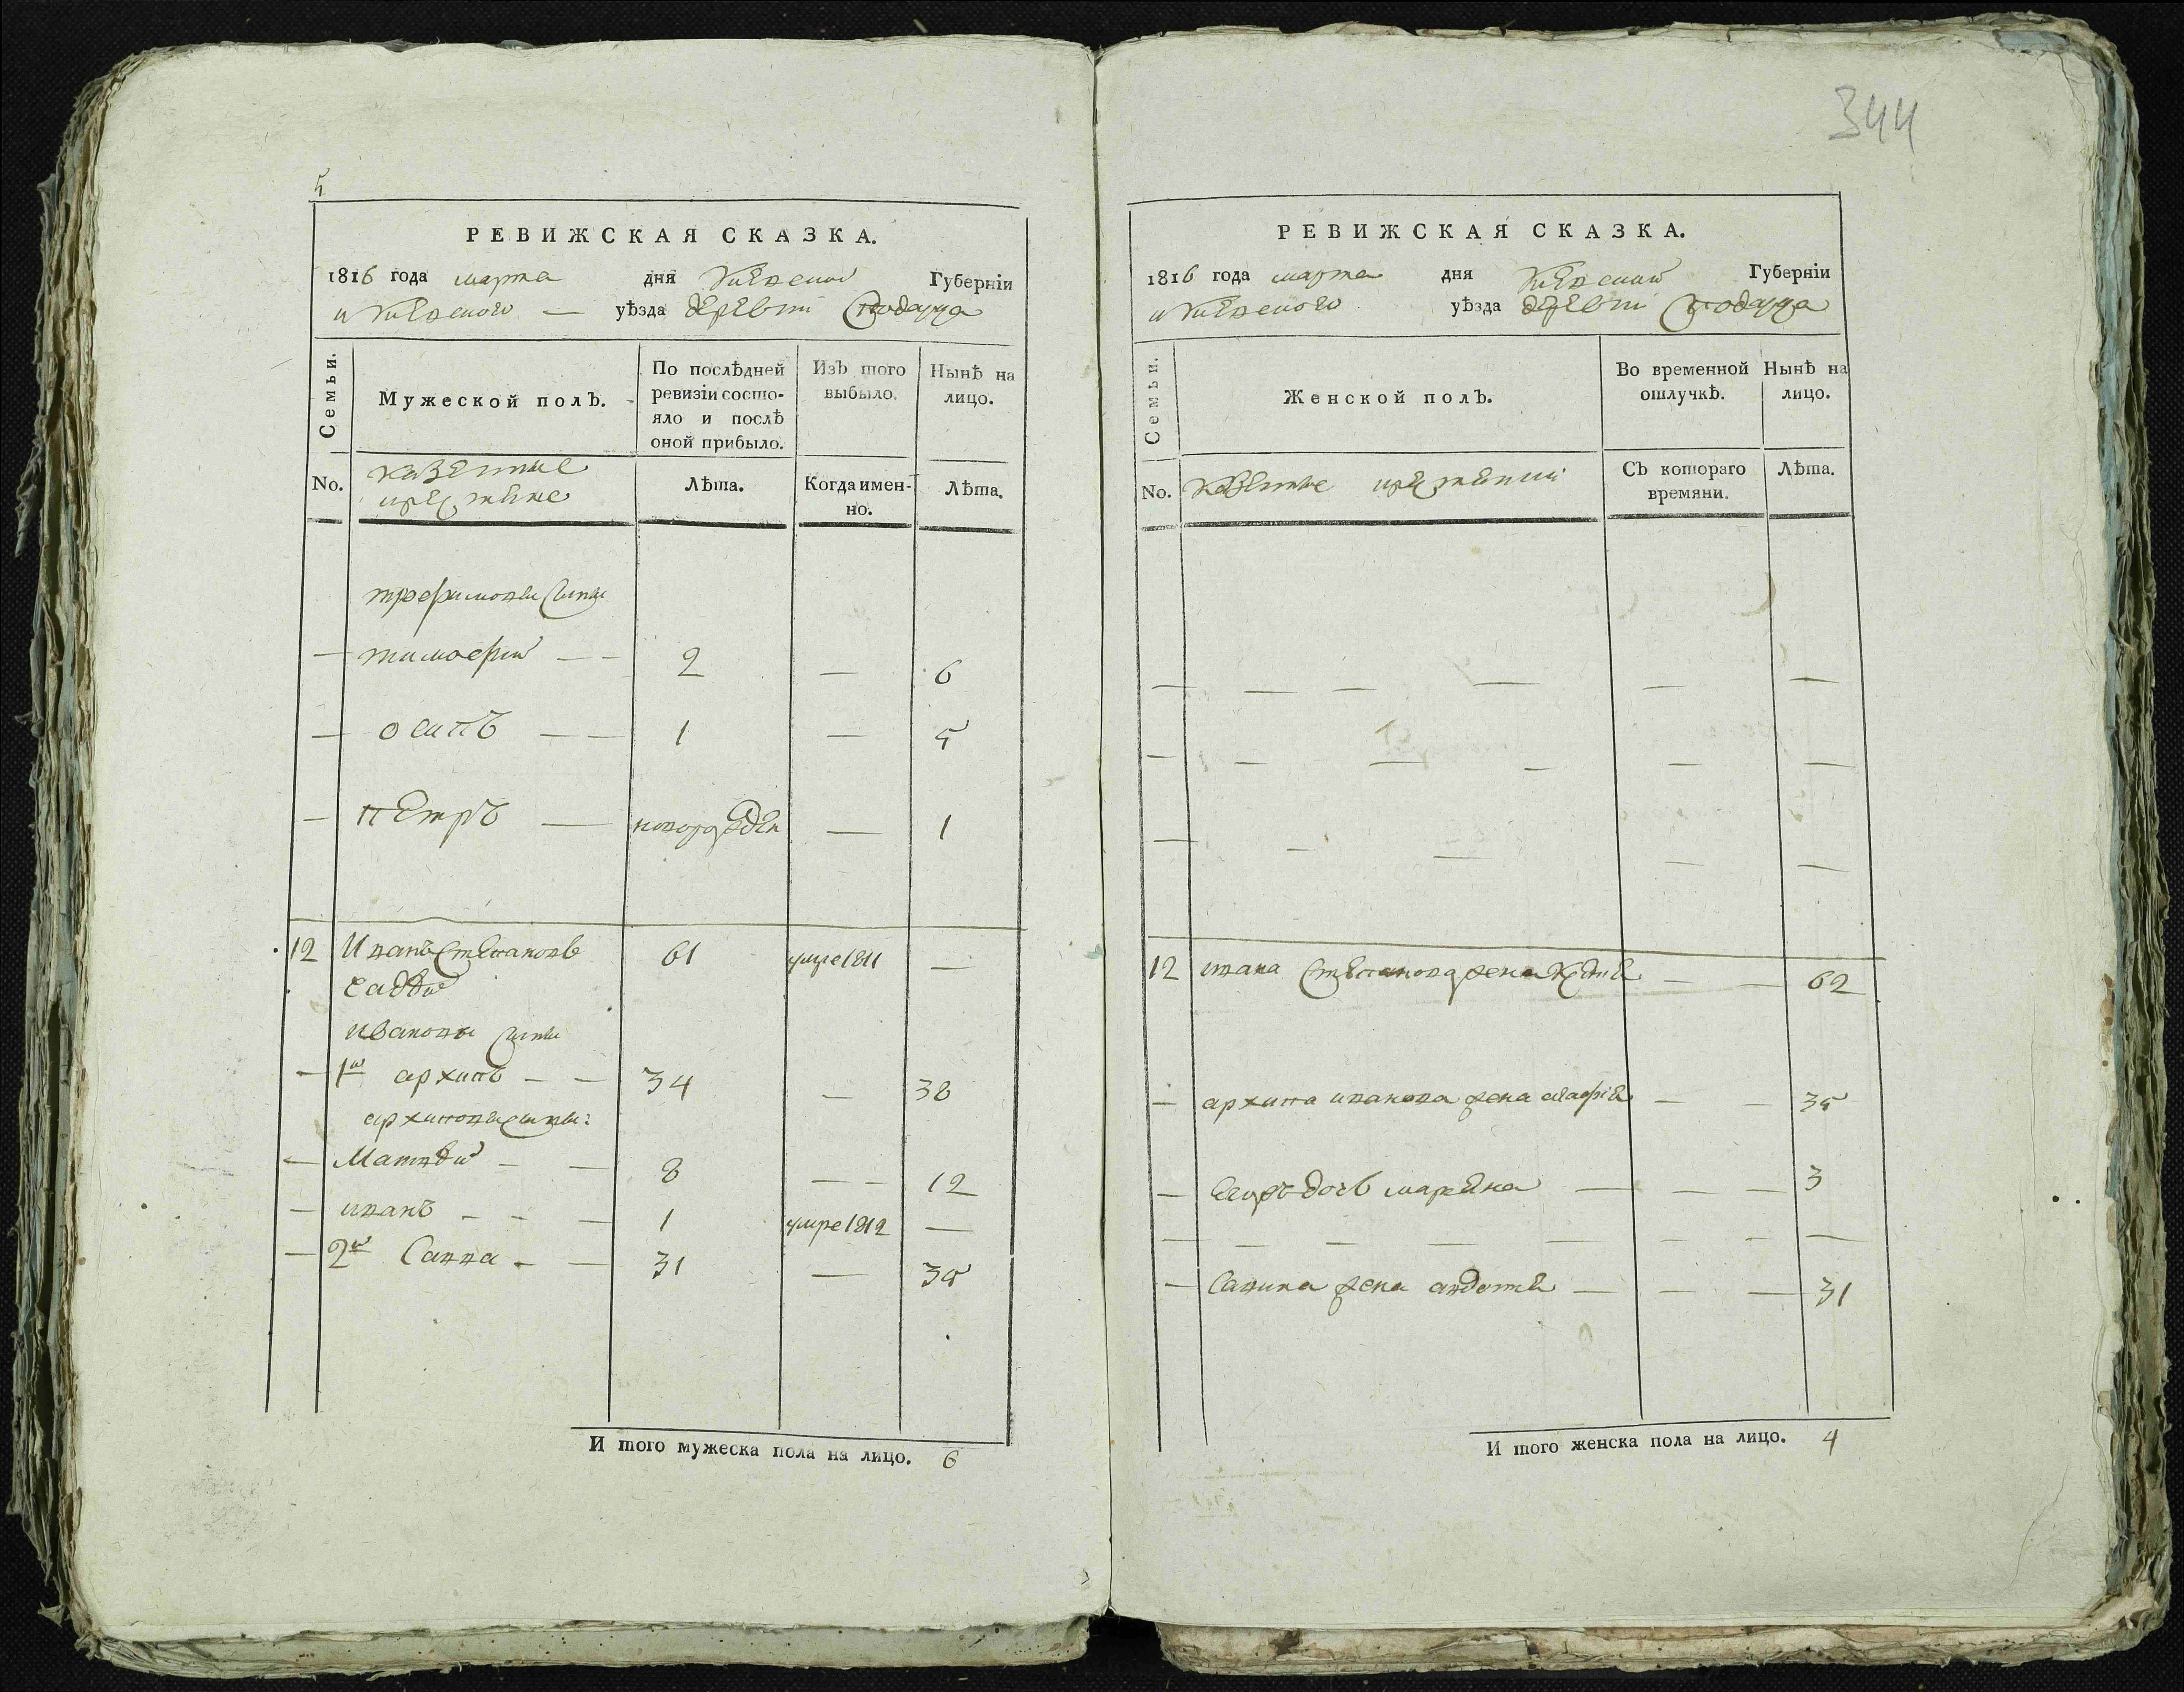 344
5
РЕВИЖСКАЯ СКАЗКА.
1816 года марта дня Киевской Губерніи
и Киевского — уѣзда деревни
Семьи.
Мужеской полъ.
По послѣдней ревизіи состояло и послѣ оной прибыло.
Изъ того выбыло.
Нынѣ на лицо.
No.
казенные
Лѣта.
Когда именно.
Лѣта.
трофимовы сыны
— тимофей — — 2 — 6
— осипъ — — 1 — 5
— петръ — новорожден — 1
12 Иванъ Степановъ 61 умре 1811 —
ивановы сыны
— 1й архипъ — — 34 — 38
архиповы сыны:
— Матвѣй — — 8 — — 12
— иванъ — — — 1 умре 1812 —
— 2й Савва — — 31 — 35
И того мужеска пола на лицо. 6
РЕВИЖСКАЯ СКАЗКА.
1816 года марта дня Киевской Губерніи
и Киевского уѣзда деревни
Семьи.
Женской полъ.
Во временной отлучкѣ.
Нынѣ на лицо.
No.
казенные
Съ котораго времяни.
Лѣта.
12 ивана Степанова жена — — 62
— архипа иванова жена агафия — — 35
— дочь марена — — — 3
— Савина жена авдотя — — — 31
И того женска пола на лицо. 4